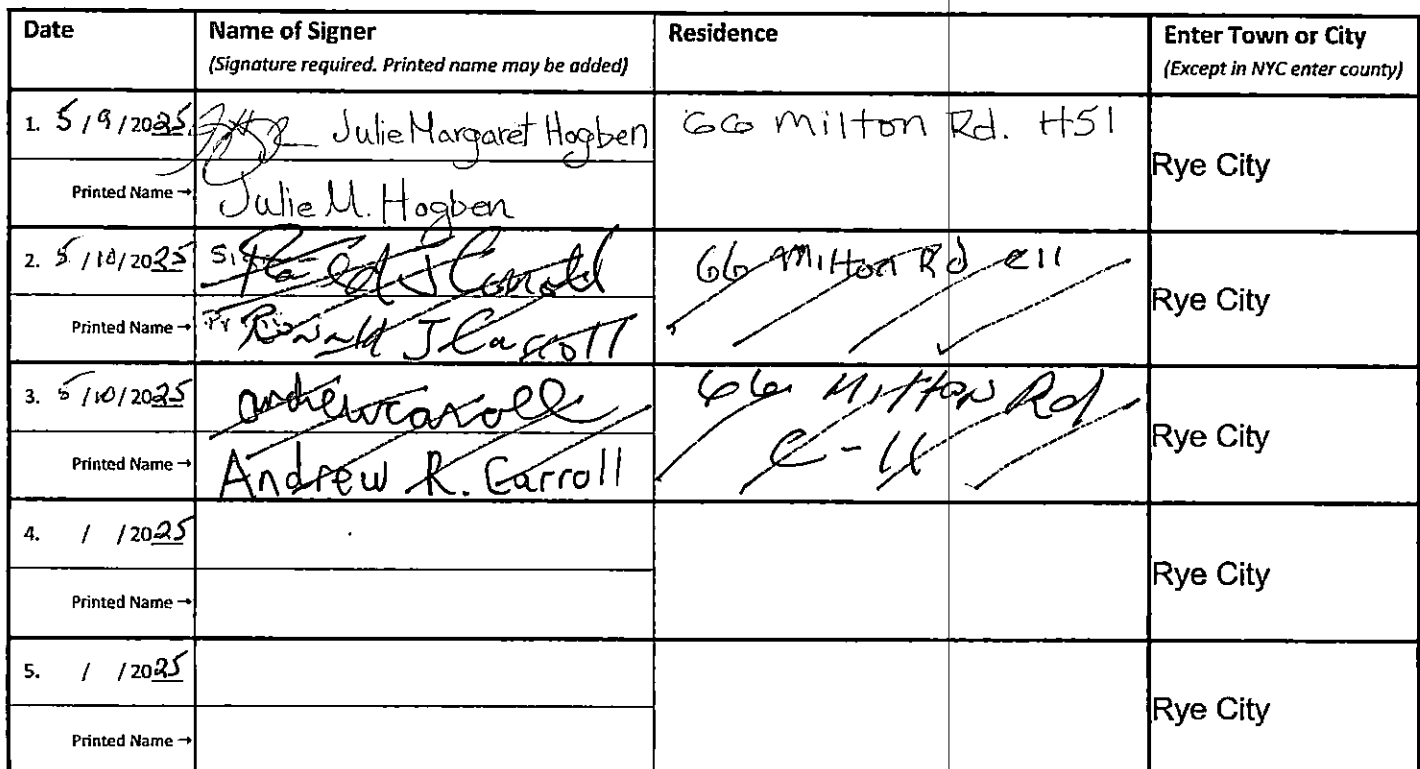 Date Name of Signer Residence Enter Town or City
(Signature required. Printed name may be added) (Except in NYC enter county)
1. 5/9/2025 Julie Margaret Hogben 66 Milton Rd. H51
Rye City
Printed Name→ Julie M. Hogben
2. 5/10/2025 Ronald J Carroll 66 Milton Rd C11
Rye City
Printed Name→ Ronald J Carroll
3. 5/10/2025 andrew carroll 66 Milton Rd
C-11
Rye City
Printed Name→ Andrew R. Carroll
4. / /2025
Rye City
Printed Name→
5. / /2025
Rye City
Printed Name→